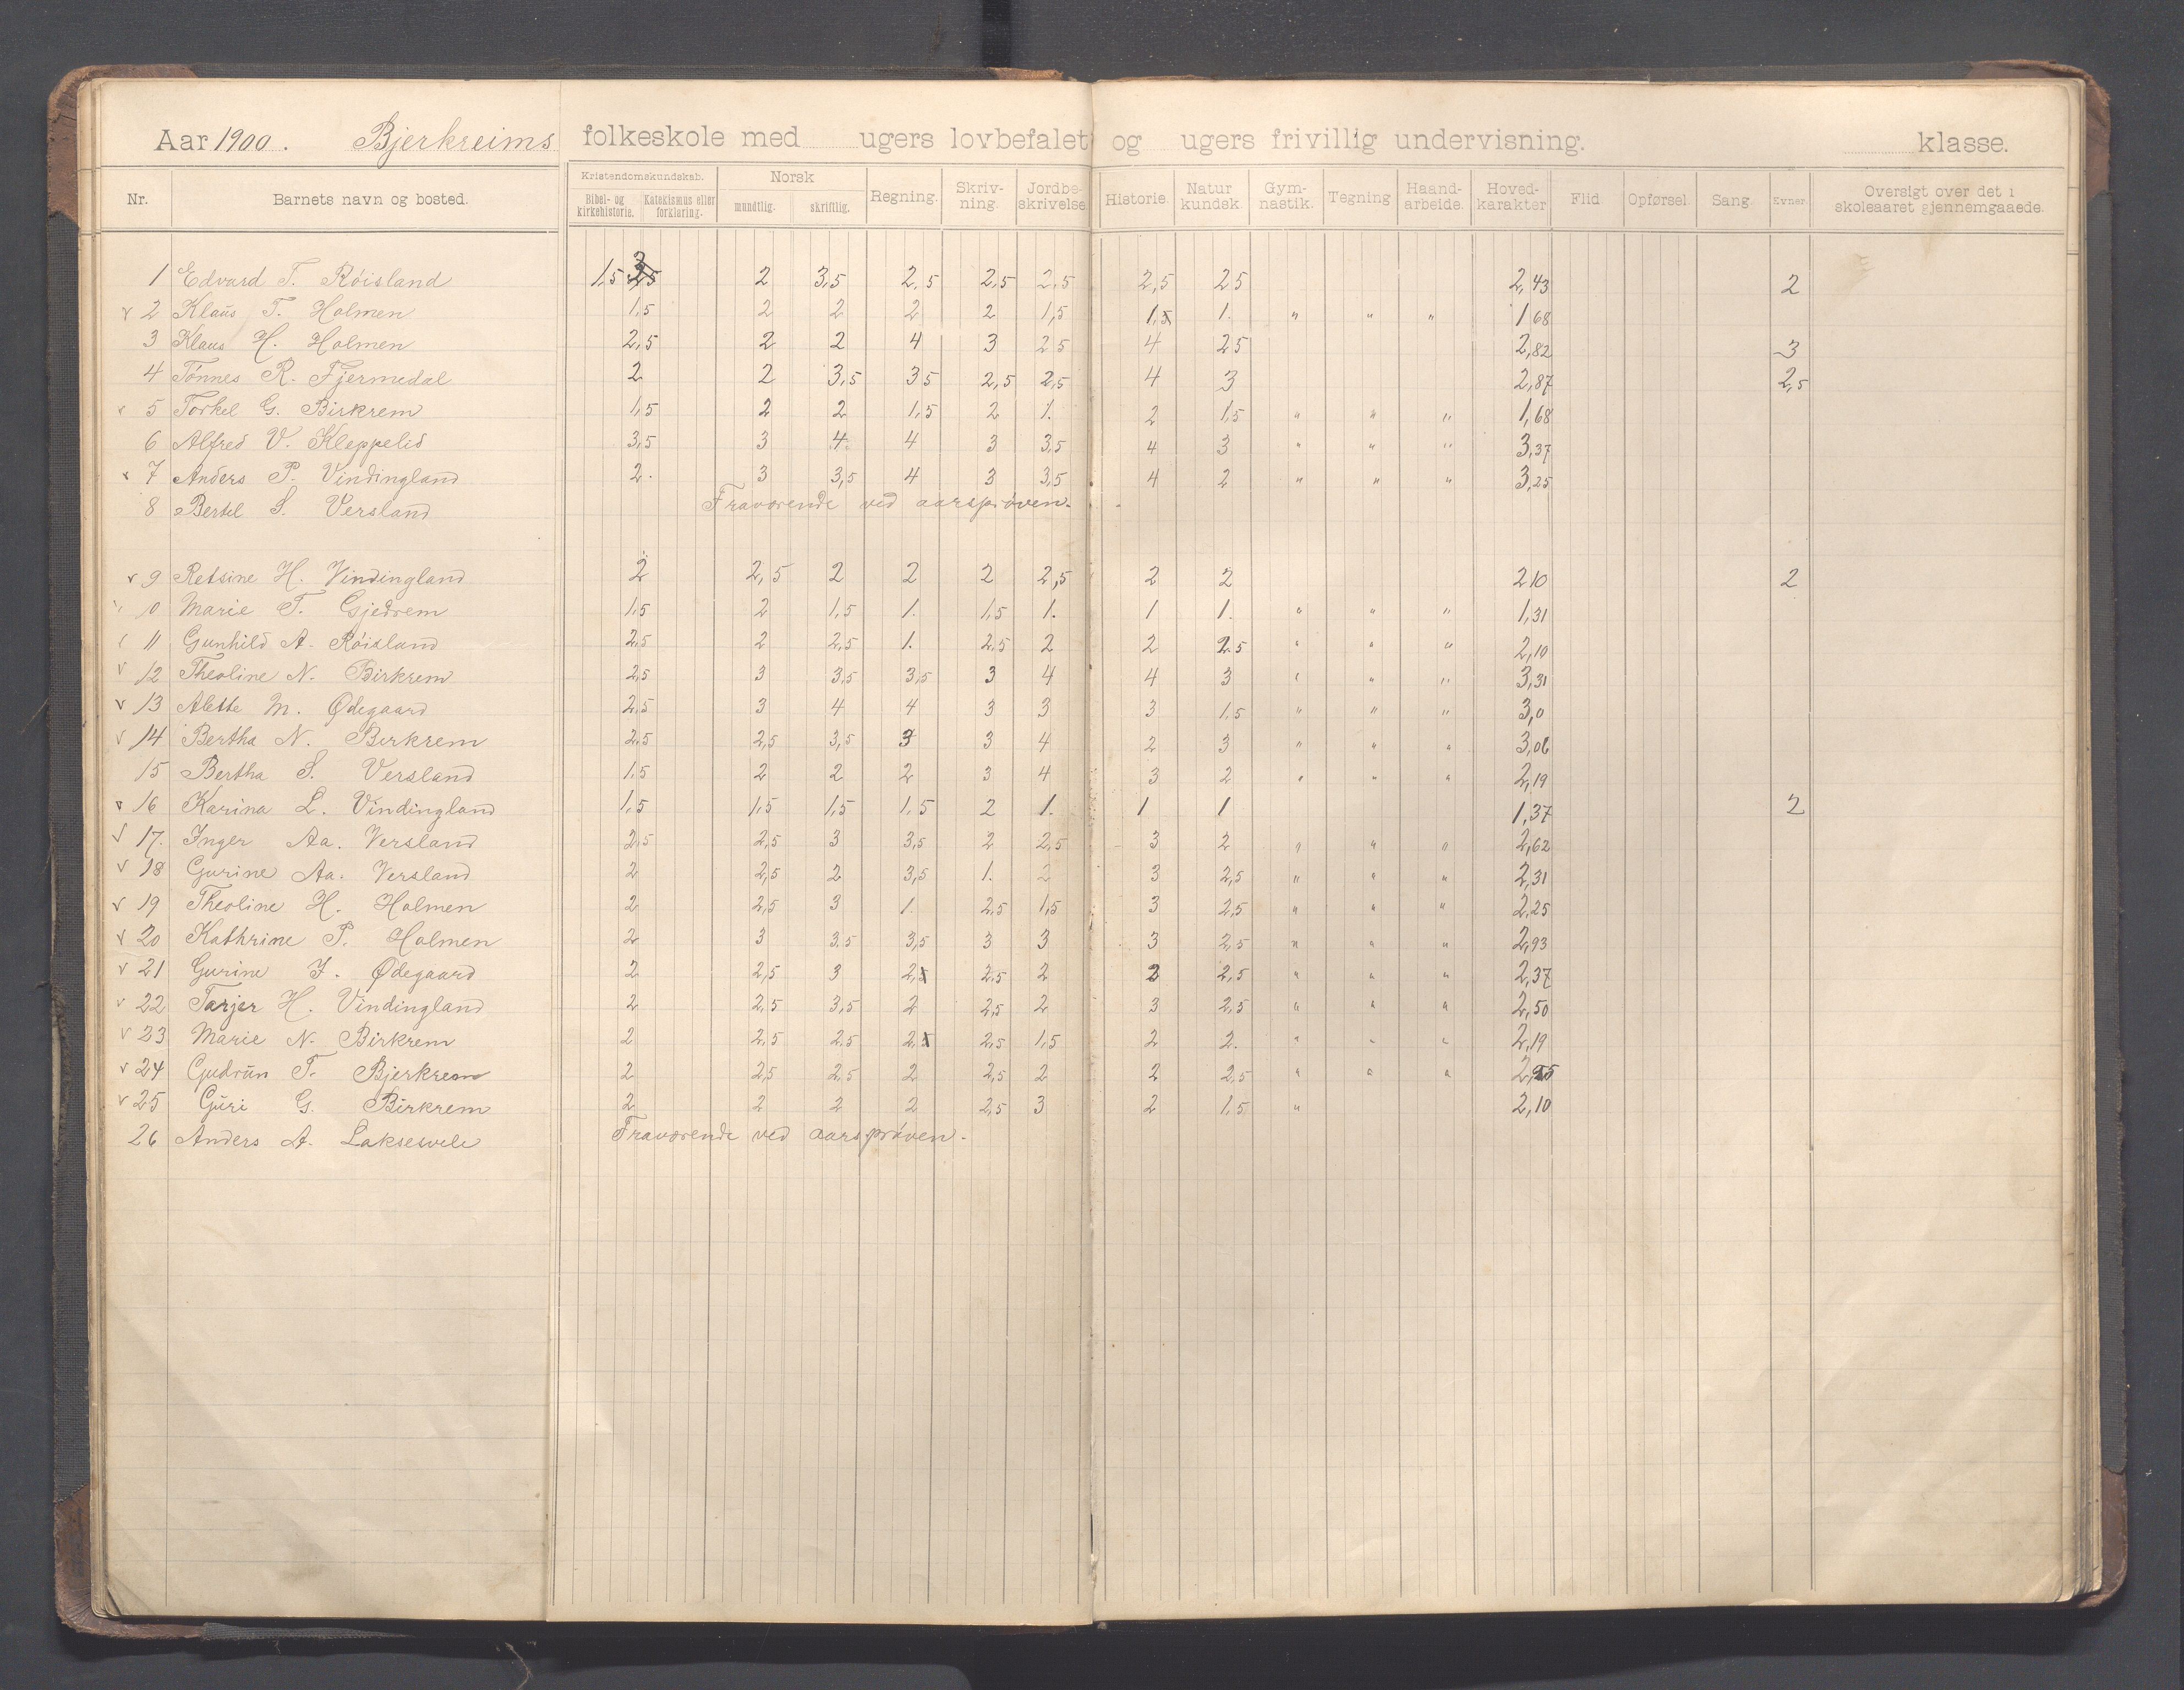 Aar 1900. Bjerkreims folkeskole med ugers lovbefalet og ugers frivillig undervisning. klasse.
Nr. Barnets navn og bosted. Kristendomskundskab. Bibel- og kirkehistorie. Katekismus eller forklaring. Norsk mundtlig. skriftlig. Regning. Skriv-ning. Jordbe-skrivelse Historie. Natur kundsk. Gym-nastik. Tegning Haand-arbeide. Hoved-karakter Flid Opførsel Sang. Evner. Oversigt over det i skoleaaret gjennemgaaede.
1 Edvard T. Röisland 1,5 2 3,5 2,5 2,5 2,5 2,5 25 2,43 2
v 2 Klaus T. Holmen 1,5 2 2 2 2 1,5 1,5 1. " " " 1 68
3 Klaus H. Holmen 2,5 2 2 4 3 25 4 25 2,82 3
4 Tönnes R. Fjermedal 2 2 3,5 35 2,5 2,5 4 3 2,87 2,5
v 5 Torkel G. Birkrem 1,5 2 2 1,5 2 1. 2 1,5 " " " 1,68
6 Alfred V. Kleppelid 3,5 3 4 4 3 3,5 4 3 " " " 3,37
v 7 Anders P. Vindingland 2. 3 3,5 4 3 3,5 4 2 " " " 3,25
8 Bertel S. Versland Fraværende ved aarspröven.
v 9 Retsine H. Vindingland 2 2,5 2 2 2 2,5 2 2 2 10 2
0 Marie T. Gjedrem 1,5 2 1,5 1. 1,5 1. 1 1. " " " 1,31
11 Gunhild A. Röisland 2,5 2 2,5 1. 2,5 2 2 2.5 " " " 2,10
v 12 Theoline N. Birkrem 2,5 3 3,5 3,5 3 4 4 3 " " " 3,31
v 13 Alette M. Ødegaard 2,5 3 4 4 3 3 3 1,5 " " " 3,0
v 14 Bertha N. Birkrem 2,5 2,5 3,5 3 3 4 2 3 " " " 3,06
15 Bertha S. Versland 1,5 2 2 2 3 4 3 2 " " " 2,19
v 16 Karina L. Vindingland 1,5 1,5 1,5 1,5 2 1. 1 1 1,37 2
v 17. Inger Aa. Versland 2,5 2,5 3 3,5 2 2,5 3 2 " " " 2,62
v 18 Gurine Aa. Versland 2 2,5 2 3,5 1. 2 3 2,5 " " " 2,31
v 19 Theoline H. Holmen 2 2,5 3 1. 2,5 1,5 3 2,5 " " " 2,25
v 20 Kathrine P. Holmen 2 3 3,5 3,5 3 3 3 2,5 " " " 2,93
v 21 Gurine J. Ødegaard 2 2,5 3 2,5 2,5 2 2 2,5 " " " 2,37
v 22 Tarjer H. Vindingland 2 2,5 3,5 2 2,5 2 3 2,5 " " " 2,50
v 23 Marie N. Birkrem 2 2,5 2,5 2, 2,5 1,5 2 2. " " " 2,19
v 24 Gudrun T. Bjerkrem 2 2,5 2,5 2 2,5 2 2 2,5 " " " 2,25
v 25 Guri G. Birkrem 2 2 2 2 2,5 3 2 1,5 " 2,10
26 Anders A. Laksesvele Fraværende ved aarspröven.